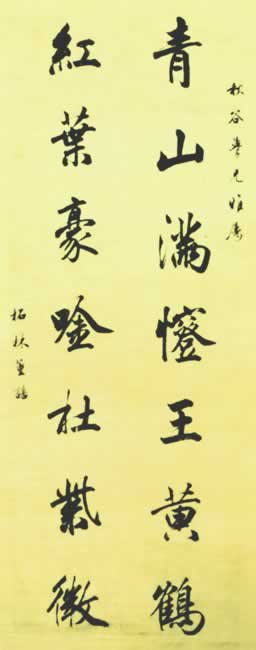 秋谷學兄雅屬
青山滿㡧王黃鶴
紅葉豪唫杜紫微
柘林